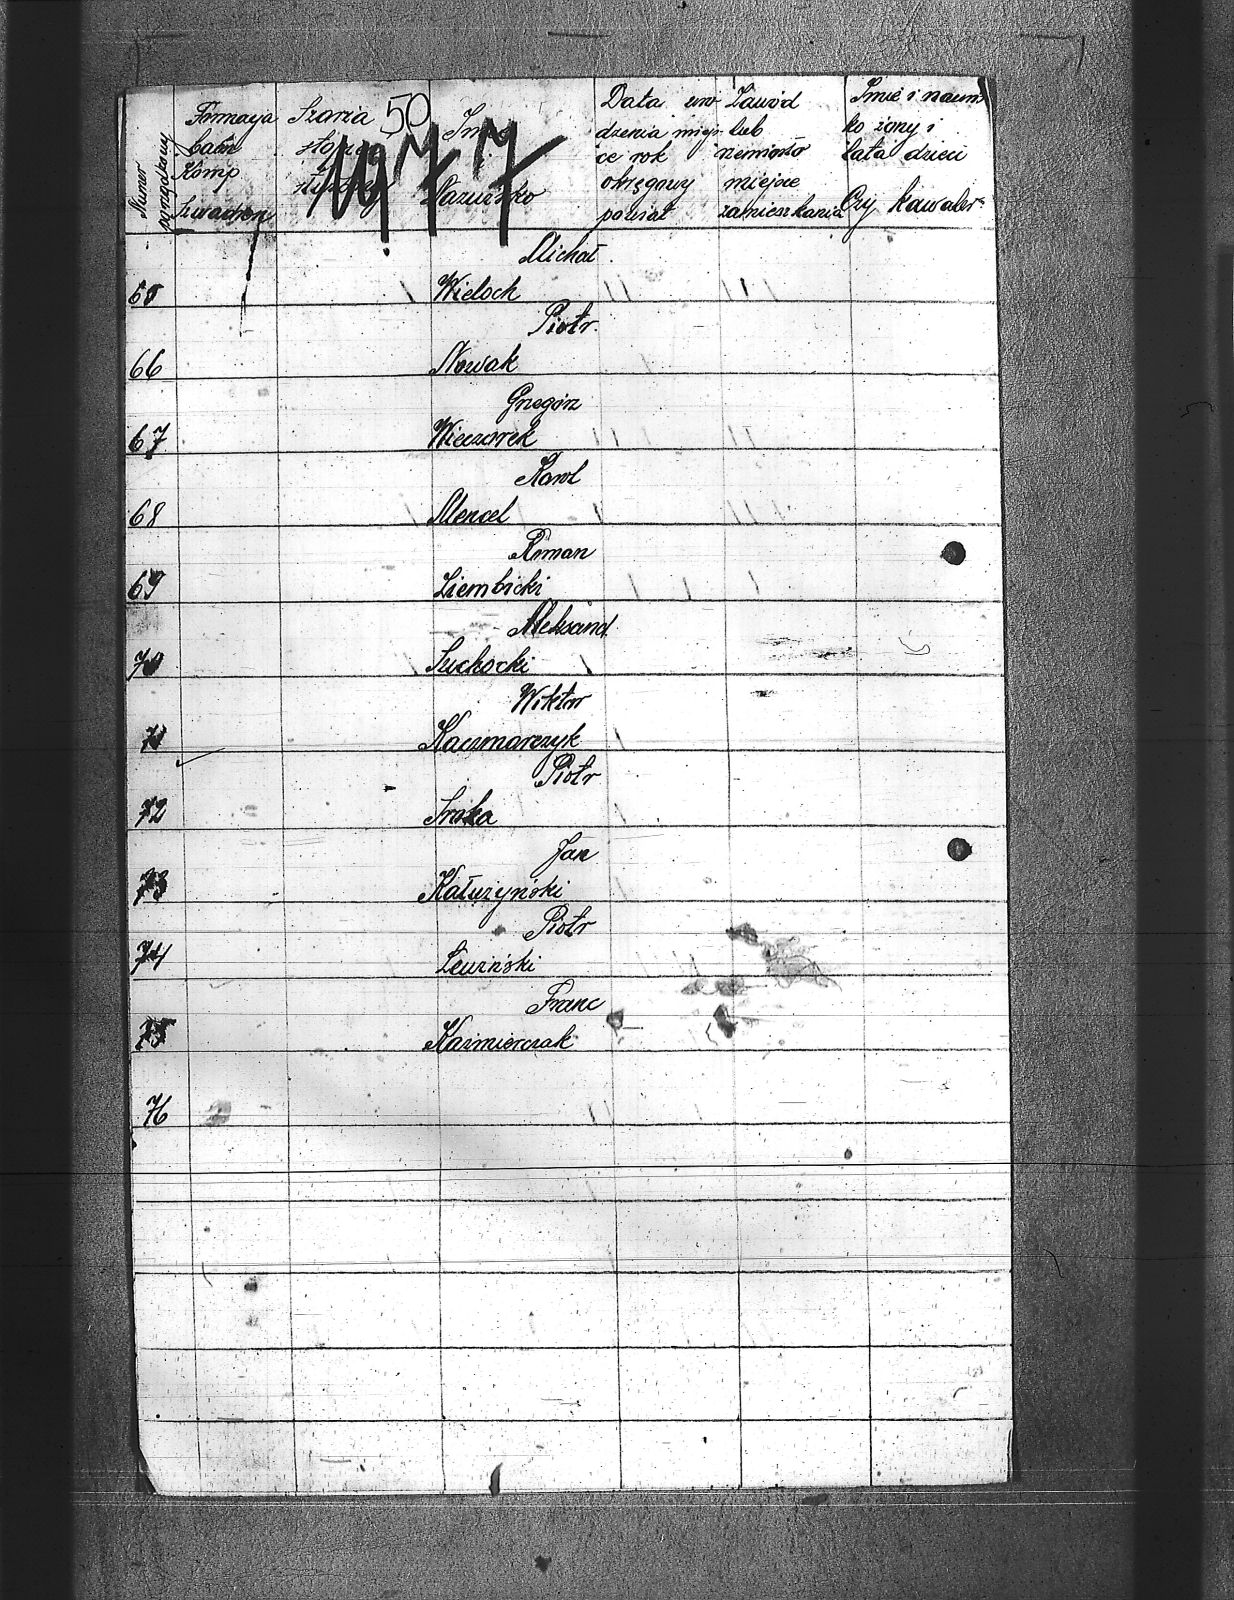 50
1977
Numer porządkowy
Formacja Szarża Imię Data uro Zawód Imię i nazwis
baon stopień i dzenia miesi lub ko żony i
Komp ce rok rzemiosło lata dzieci
Nazwisko okręgowy miejsce
Szwadron powiat zamieszkania Czy kawaler
Michał
65 Wieloch
Piotr
66 Nowak
Gregorz
67 Wieczorek
Karol
68 Mencel
Roman
69 Ziembicki
Aleksand
70 Suchocki
Wiktor
71 Kaczmarczyk
Piotr
72 Sroka
Jan
73 Kałużyński
Piotr
74 Lewiński
Franc
75 Kaźmierczak
76